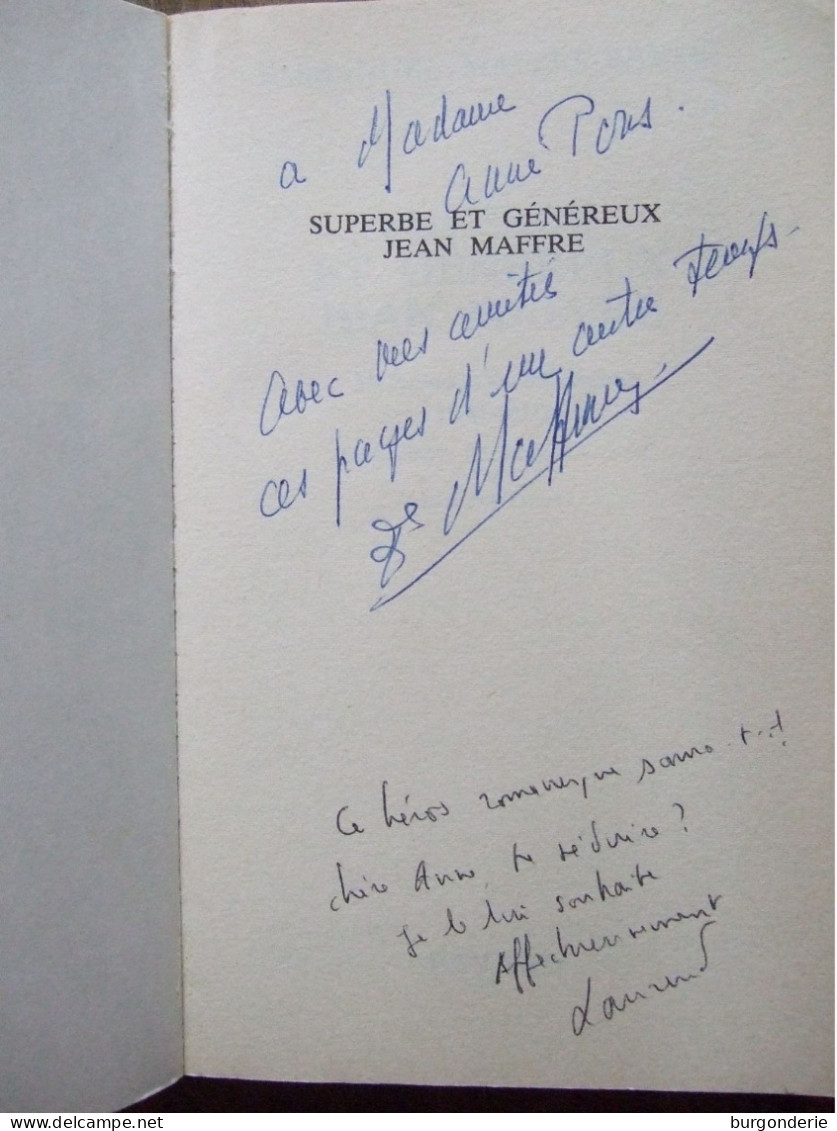 a Madame
Anne Pons.
SUPERBE ET GÉNÉREUX
JEAN MAFFRE
Avec mes amitiés
ces pages d'un autre temps.
Ce héros romanesque saura-t-il
chère Anne, te séduire ?
Je le lui souhaite
Affectueusement
burgonderie